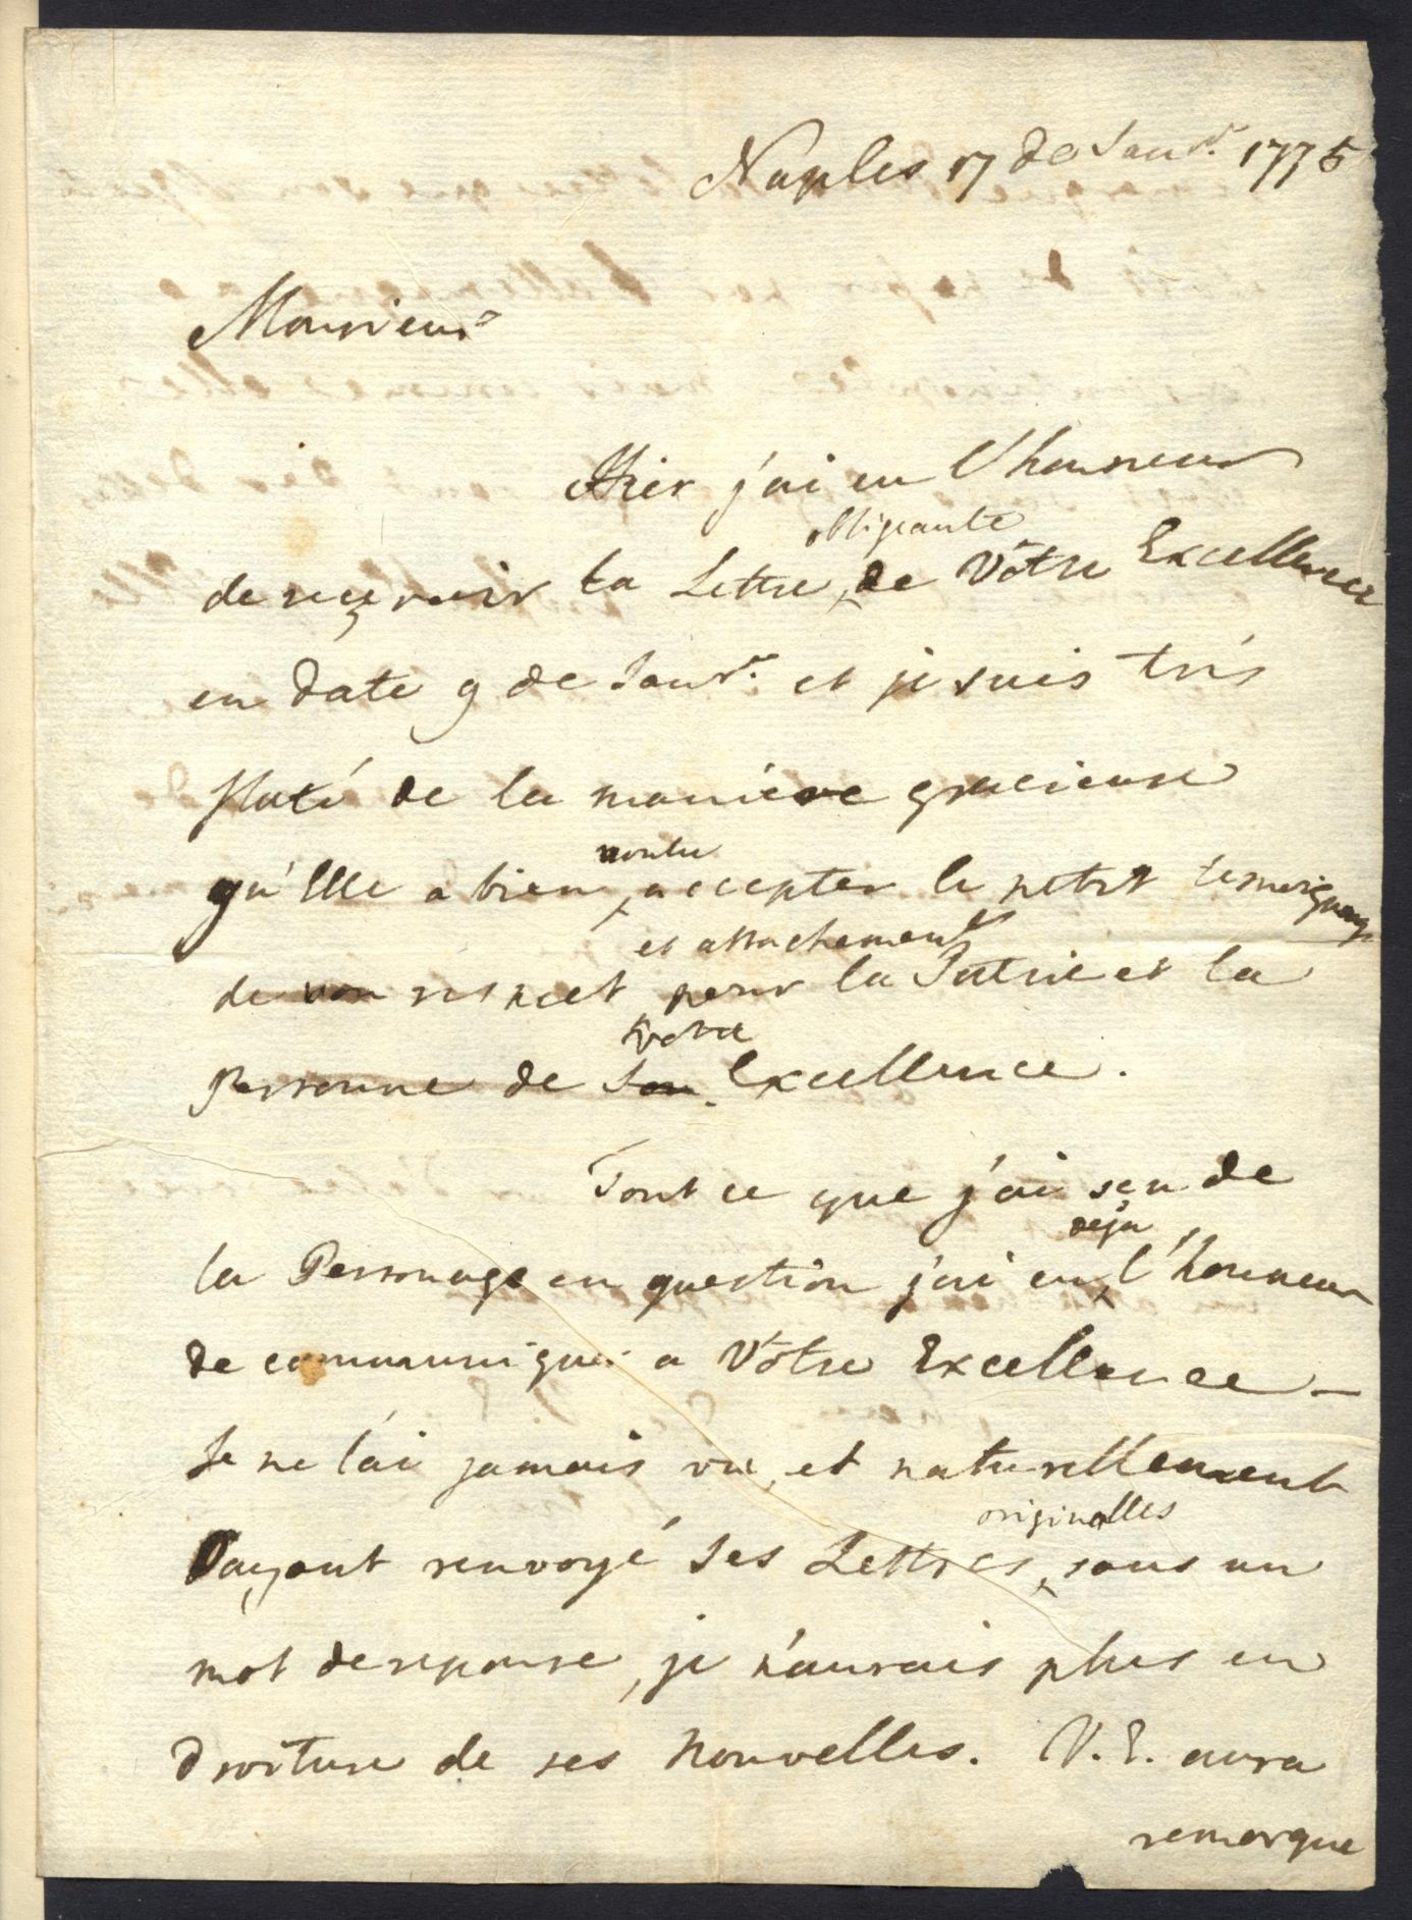 Naples 17 de Janr. 1775
Monsieur
Hier j'ai eu l'honneur
obligeante
de reçevoir la Lettre de Vôtre Excellence
en date 9 de Janr. et je suis trés
flaté de la maniére gracieuse
voulu
qu'Elle a bien accepter le petit temoignage
et attachement
de son respect pour la Patrie et la
votre
Personne de Son Excellence.
Tout ce que j'ai sçu de
deja
la Personage en question j'ai eu l'honneur
de communiquer a Vôtre Excellence –
Je ne l'ai jamais vu, et naturellement
originalles
ayant renvoyé ses Lettres, sans un
mot de reponse, je n'aurais plus en
droiture de ses nouvelles. V. E. aura
remarque